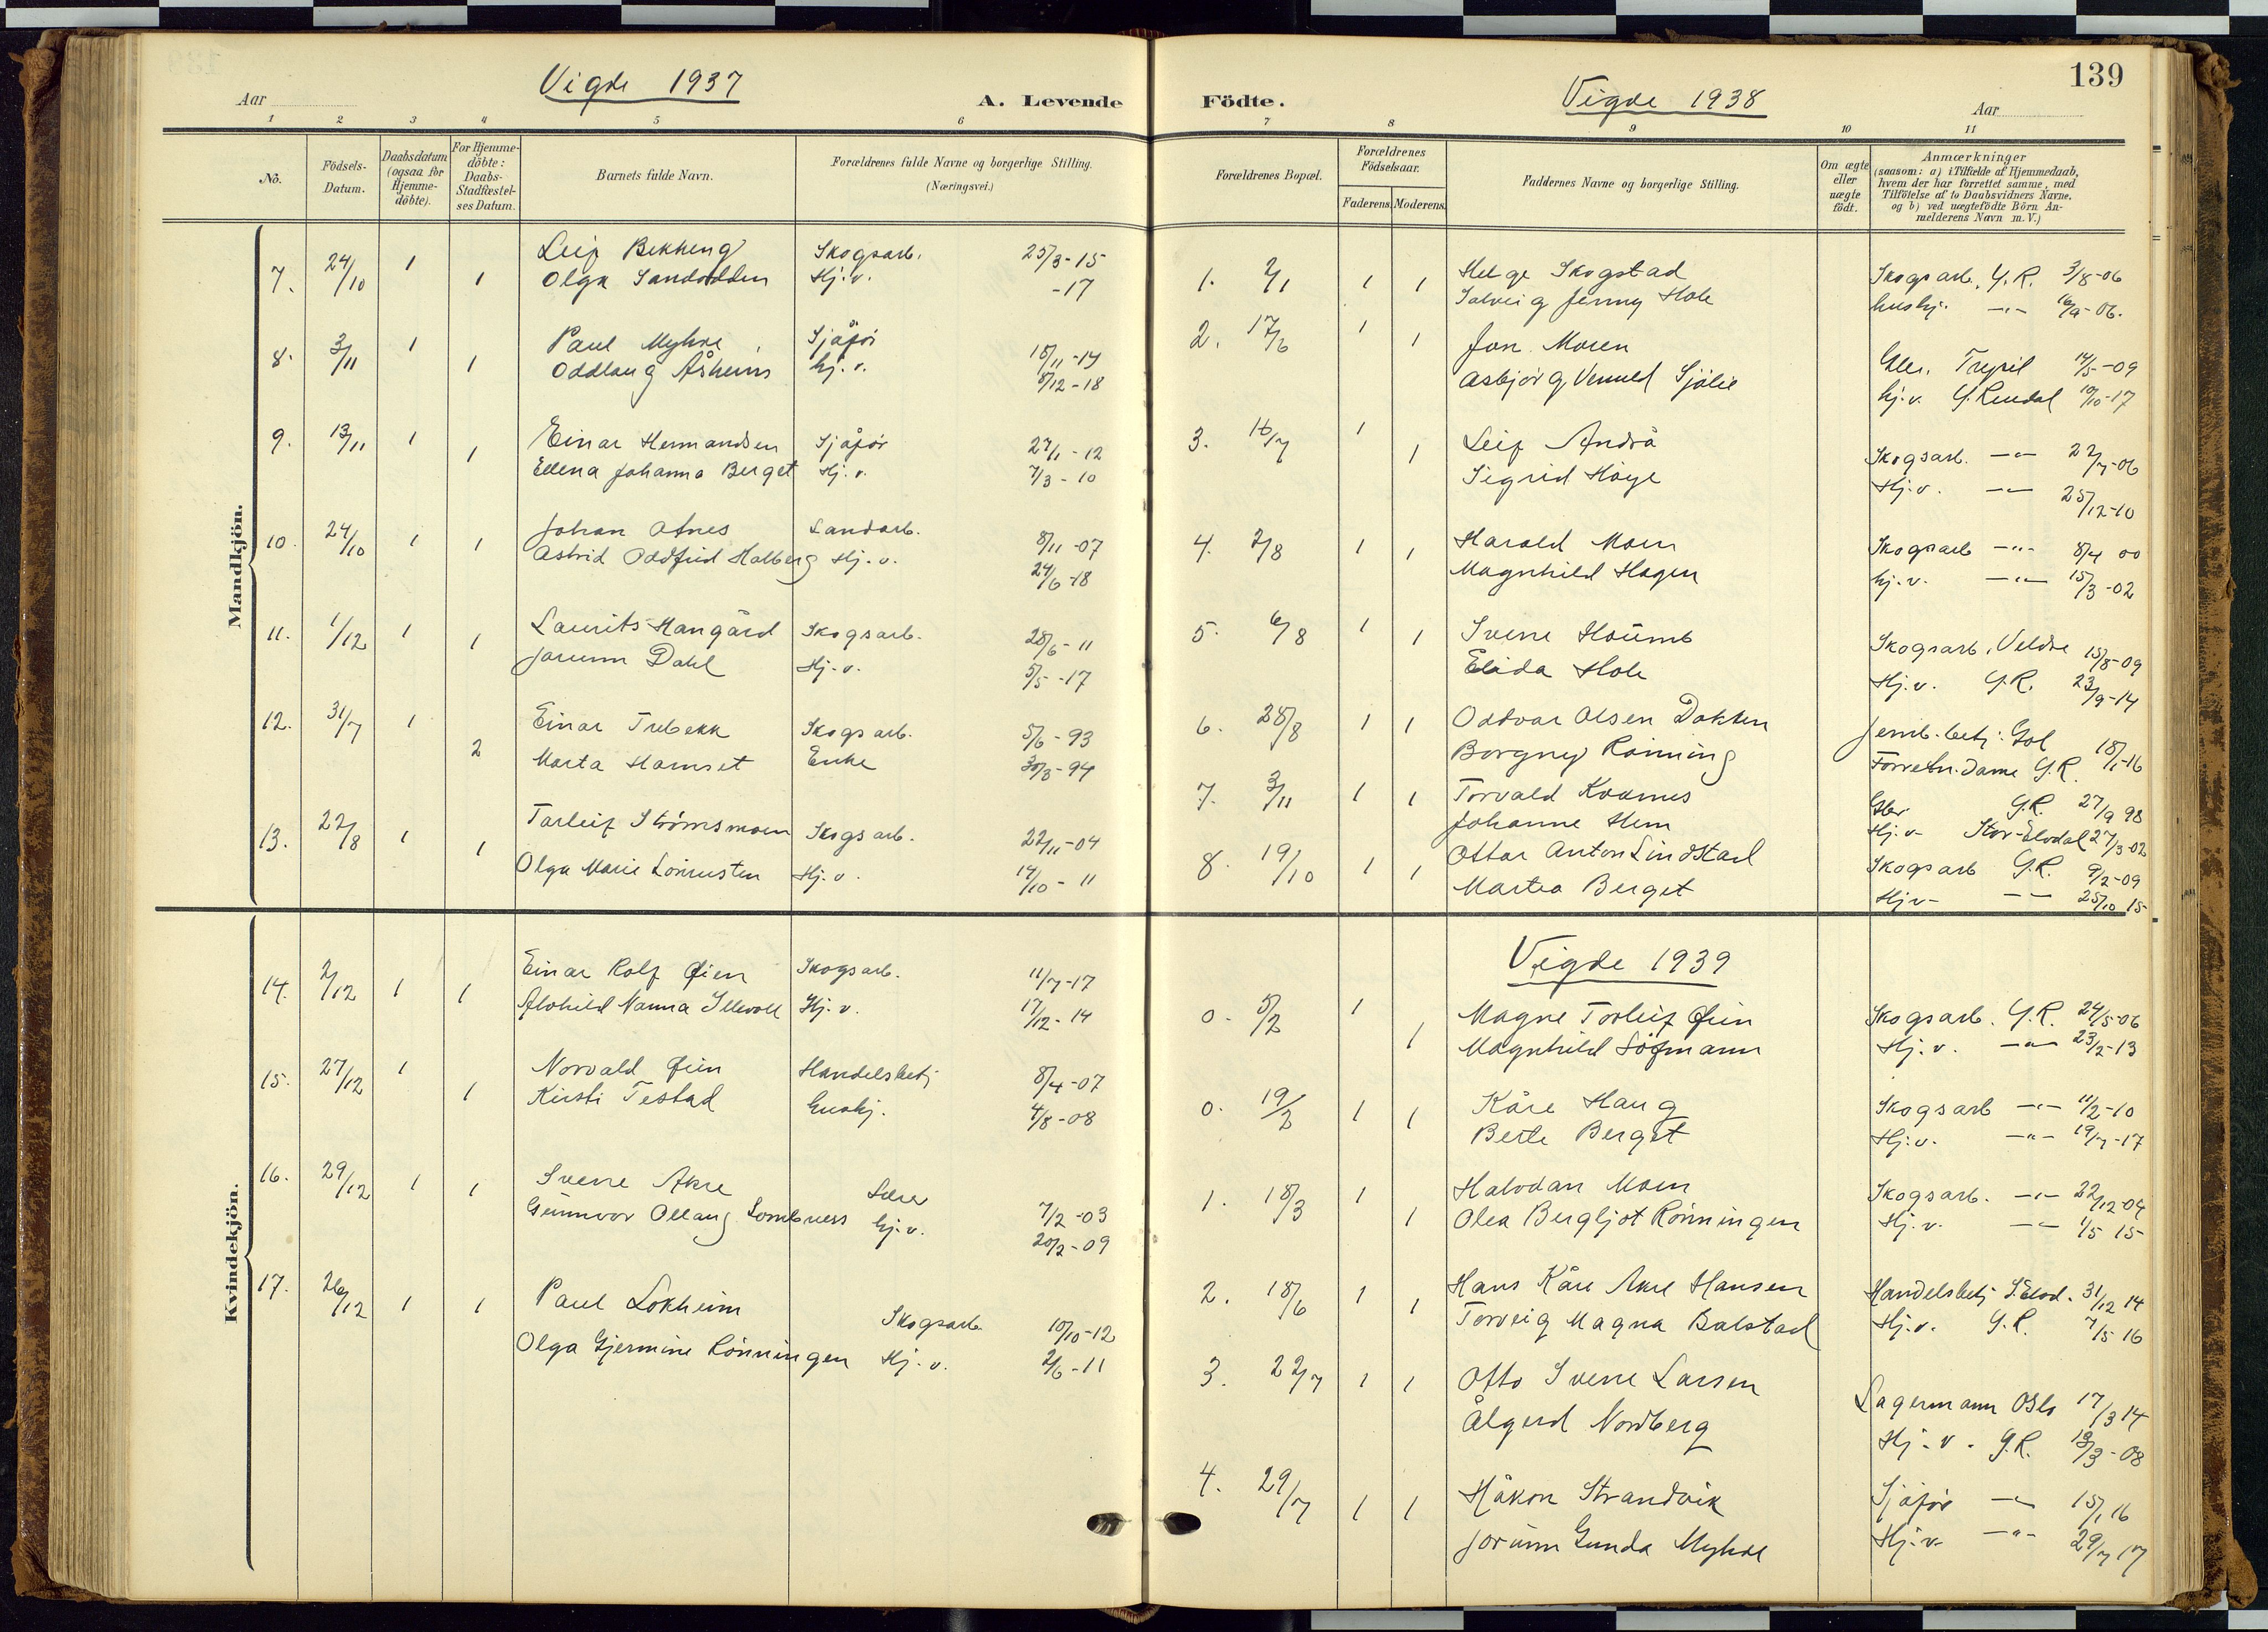 Vigde 1937
Aar
A. Levende
1 2 3 4 5 6
No.
Födsels-Datum.
Daabsdatum (ogsaa for Hjemme-döbte).
For Hjemme-döbte: Daabs-Stadfæstel-ses Datum.
Barnets fulde Navn.
Forældrenes fulde Navne og borgerlige Stilling.
(Næringsvei.)
Mandkjön.
7. 24/10 1 Leif Bekkeng Skogsarb. 25/3-15
1 Olga Sandodden Hj.v. -17
8. 3/11 1 Paul Myhre Sjåfør 18/11-14
1 Oddlaug Åsheim hj.v. 8/12-18
9. 13/11 1 Einar Hermandsen Sjåfør 27/1-12
1 Ellena Johanna Berget Hj.v. 7/3-10
10. 24/10 1 1 Johan Atnes Landarb. 8/11-07
Astrid Oddfrid Halberg Hj.v. 24/6-18
11. 1/12 1 Laurits Haugård Skogsarb. 28/6-11
1 Jorunn Dahl Hj.v. 5/5-17
12. 31/7 1 Einar Trebekk Skogsarb. 5/6-93
2 Marta Hamset Enke 30/3-94
13. 22/8 1 Torleif Strömsmoen Skogsarb. 22/11-04
1 Olga Marie Lönnusten Hj.v. 14/10-11
Kvindekjön.
14. 2/12 1 1 Einar Rolf Øien Skogsarb. 11/7-17
Alvhild Nanna Illevoll Hj.v. 17/12-14
15. 27/12 1 Norvald Øien Handelsbetj 8/4-07
1 Kirsti Testad hushj. 4/8-08
16. 29/12 1 1 Sverre Akre Lærer 7/2-03
Gunnvor Ollaug Lombness hj.v. 20/2-09
17. 26/12 1 1 Paul Løkheim Skogsarb 10/10-12
Olga Gjermine Rönningen Hj.v. 2/6-11
Vigde 1938
139
Födte.
Aar
7 8 9 10 11
Forældrenes Bopæl.
Forældrenes Födselsaar.
Faderens. Moderens.
Faddernes Navne og borgerlige Stilling.
Om ægte eller uægte födt.
Anmærkninger
(saasom: a) i Tilfælde af Hjemmedaab,
hvem der har forrettet samme, med
Tilföielse af to Daabsvidners Navne.
og b) ved uægtefödte Börn An-
melderens Navn m.V.)
1. 2/1 1 1 Helge Skogstad Skogsarb. Y.R. 3/8-06
Solveig Jenny Hole hushj. -"- 16/9-06.
2. 17/6 1 1 Jon Moren Trysil 14/5-09
Asbjørg Vennel Sjölie hj.v. Y.Rendal 10/10-17
3. 16/7 1 1 Leif Andrå Skogsarb. -"- 22/7-06
Sigrid Høye Hj.v. -"- 25/12-10
4. 2/8 1 1 Harald Moen Skogsarb -"- 8/4 00
Magnhild Hagen hj.v. -"- 15/3-02
5. 6/8 1 1 Sverre Houmb Skogsarb, Veldre 15/8-09
Elida Hole Hj.v. Y.R. 23/9-14
6. 28/8 1 1 Oddvar Olsen Dokken Jernb.betj. Gol 18/1-16
Borgny Rönning Forretn.dame Y.R.
7. 3/11 1 1 Torvald Kvarnes Gbr Y.R. 27/9 98
Johanne Hem Hj.v- Stor-Elvdal 27/3-02
8. 19/10 1 1 Ottar Anton Lindstad Skogsarb Y.R. 9/2-09
Martea Berget Hjv- -"- 25/10 15
Vigde 1939
0. 5/2 1 1 Magne Torleif Øien Skogsarb. Y.R. 24/5-06
Magnhild Løfmann Hj.v. -"- 23/2-13
0. 19/2 1 1 Kåre Haug Skogsarb -"- 11/2-10
Berte Berget Hj.v. -"- 19/7-17
1. 18/3 1 1 Halvdan Moen Skogsarb. -"- 22/12-04
Olea Bergljot Rönningen Hj.v. -"- 1/5 15
2. 18/6 1 1 Hans Kåre Akre Hansen Handelsbetj S.Elvd. 31/12 14
Torveig Magna Balstad Hj.v. Y.R. 7/5 16
3. 22/7 1 1 Otto Sverre Larsen Lagermann Oslo 17/3 14
Ålgerd Nordberg Hj.v. Y.R. 18/3-08
4. 29/7 1 1 Håkon Strandvik Sjåför -"- 15/1 16
Jorunn Gunda Myhre Hj.v- -"- 29/7 17